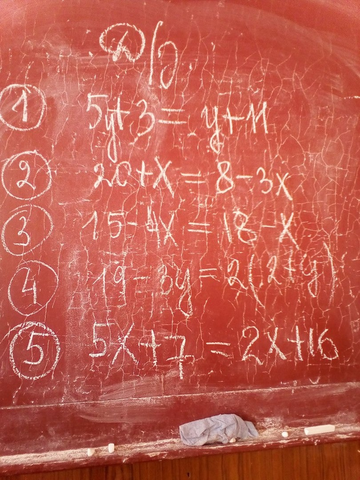 Д/з
1 5y+3=y+11
2 20+x=8-3x
3 15-4x=18-x
4 19-3y=2(2+y)
5 5x+7=2x+16